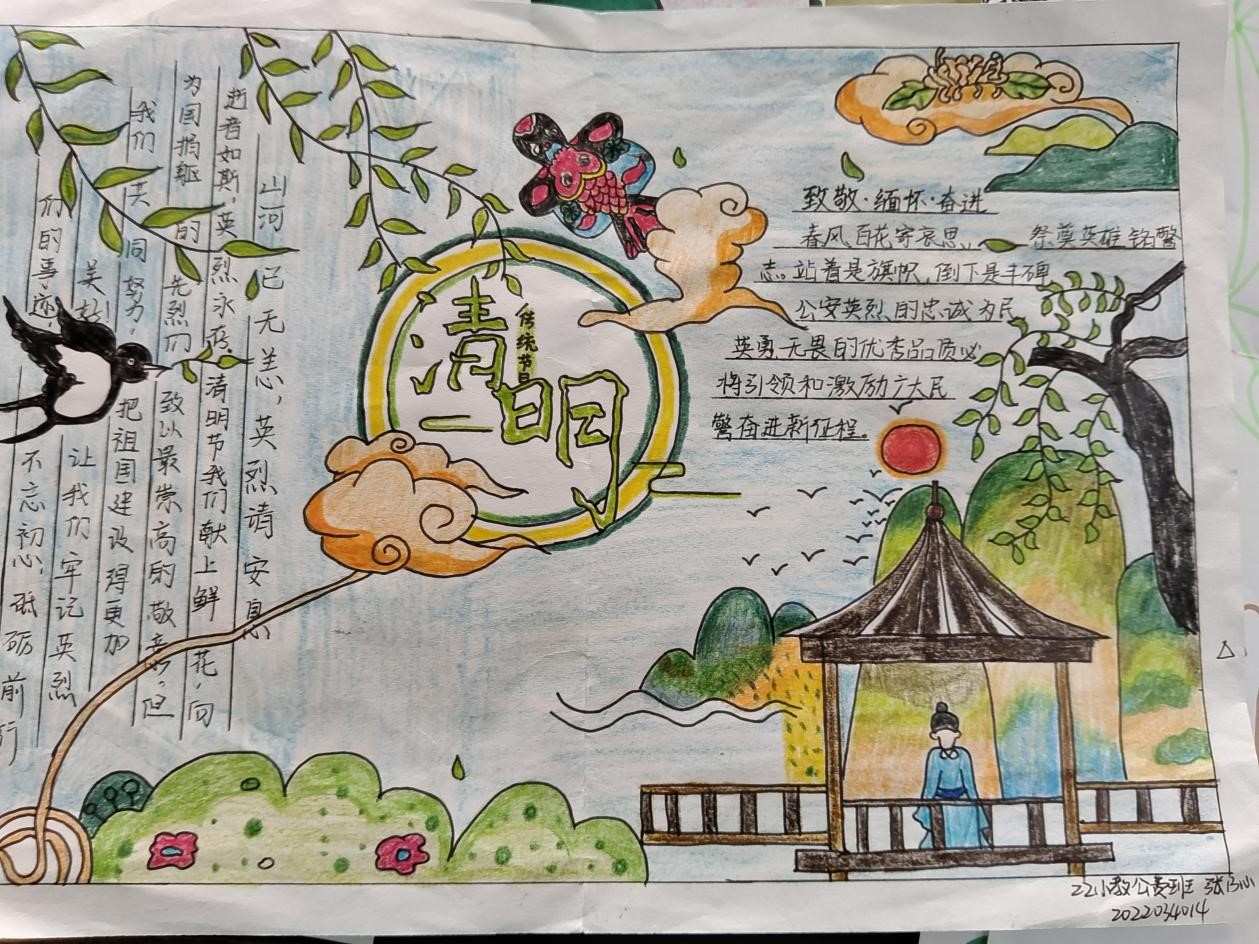 清明
传统节日
致敬·缅怀·奋进
春风百花寄哀思、祭奠英雄铭警
志。站着是旗帜,倒下是丰碑
公安英烈的忠诚为民
英勇无畏的优秀品质必
将引领和激励广大民
警奋进新征程。
山河已无恙,英烈请安息
逝者如斯,英烈永存,清明节我们献上鲜花,向
为国捐躯的先烈们致以最崇高的敬意,但
我们共同努力,把祖国建设得更加
美好
让我们牢记英烈
们的事迹,
不忘初心,砥砺前行
22小教公费班
2022034014